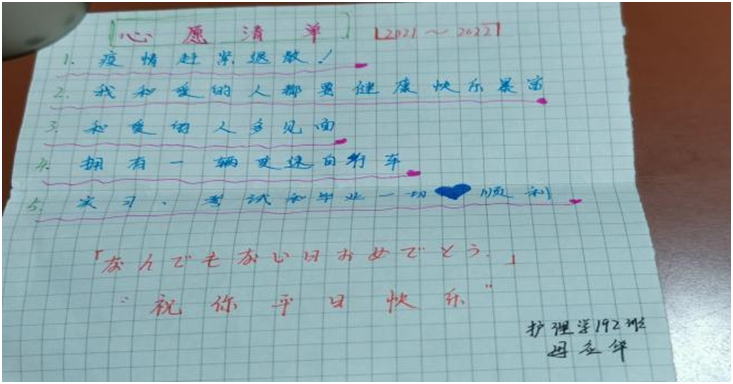 [心愿清单] [2021～2022]
1. 疫情赶紧退散！
2. 我和爱的人都要健康快乐暴富
3. 和爱的人多见面
4. 拥有一辆变速自行车
5. 实习、考试和毕业一切顺利
「なんでもない日おめでとう.」
“祝你平日快乐”
护理学192班